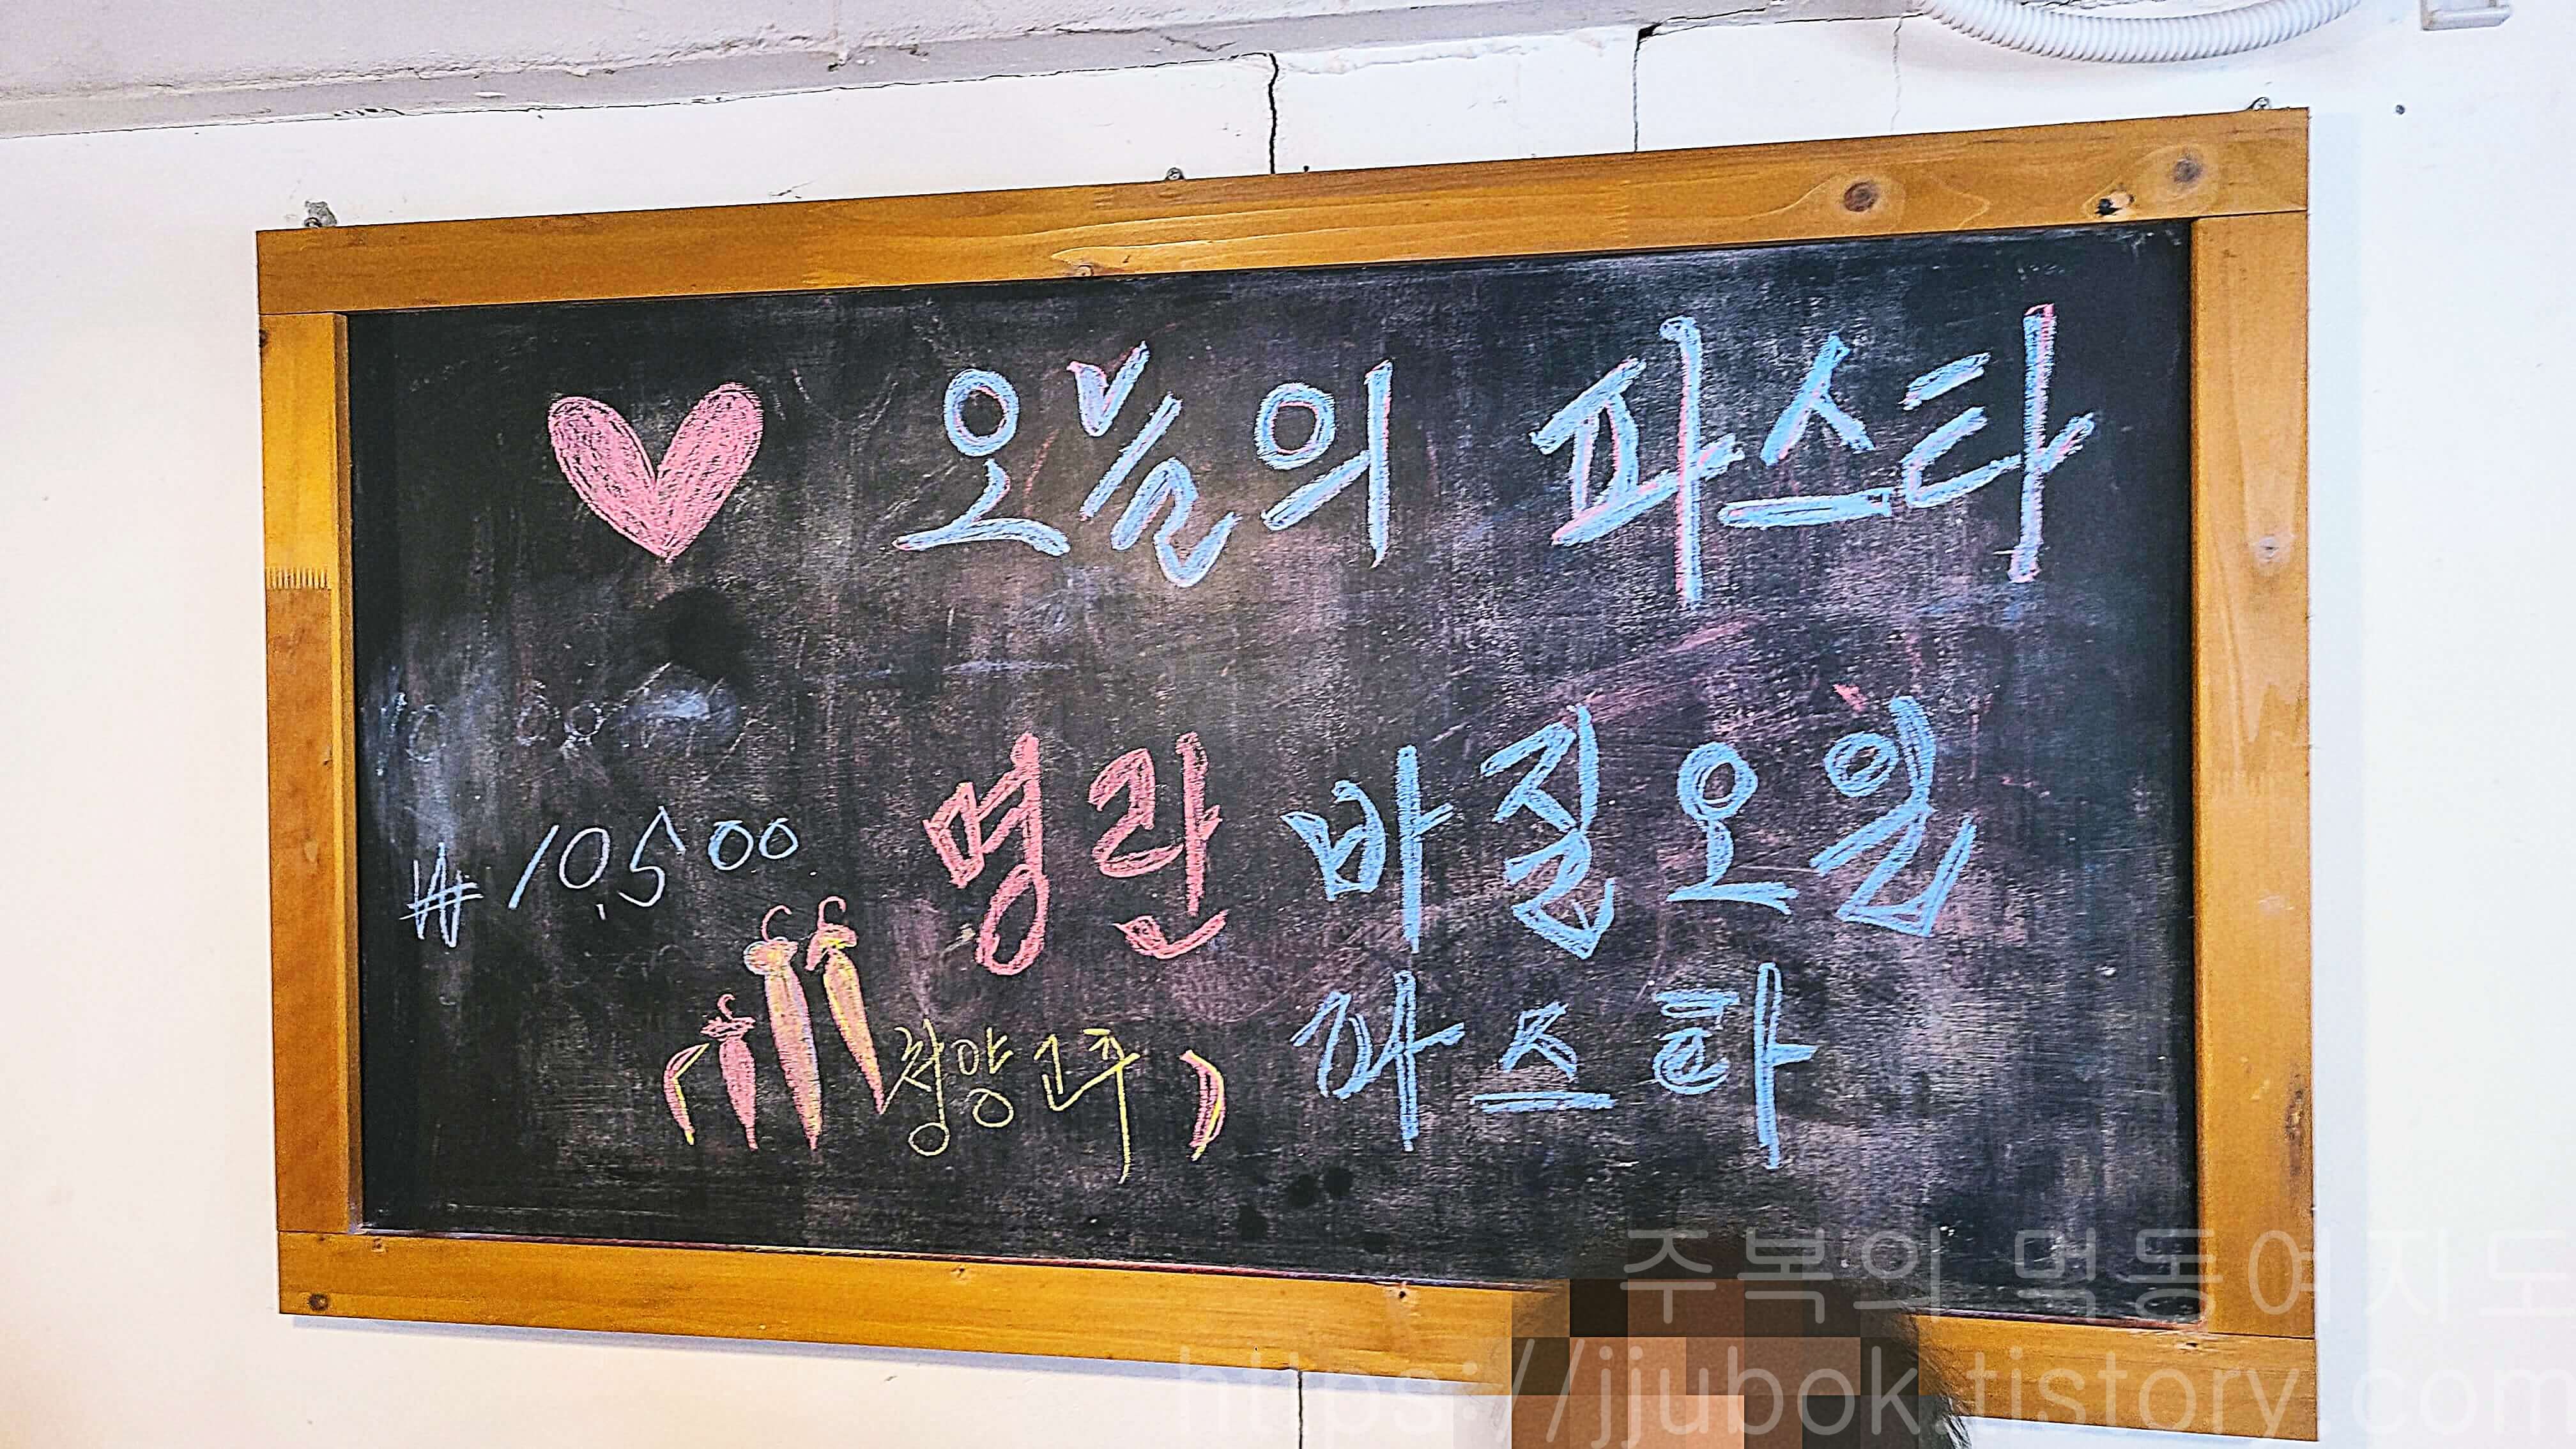 오늘의 파스타
명란 바질오일
₩ 10,500
파스타
(청양고추)
주복의 먹동여지도
https://jjubok.tistory.com